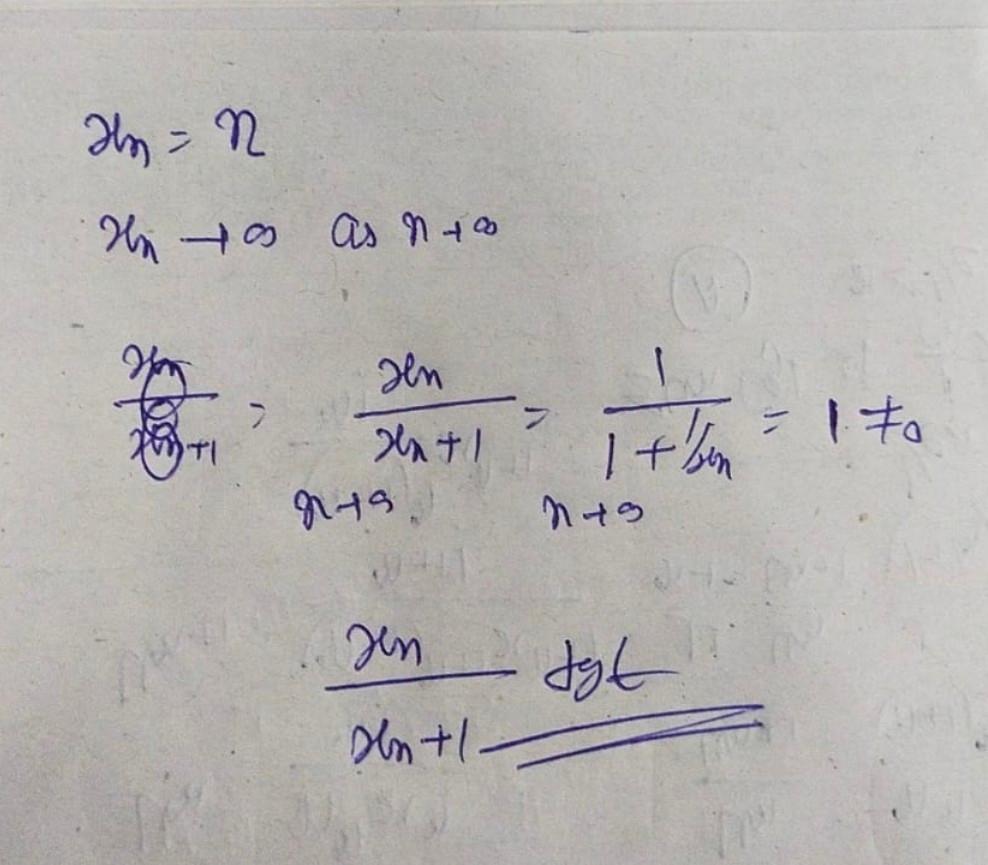 xn = n
xn → ∞ as n → ∞
xn / xn+1 = xn / xn+1 = 1 / 1+1/xn = 1 ≠ 0
n→∞ n→∞
xn / xn+1 dgt